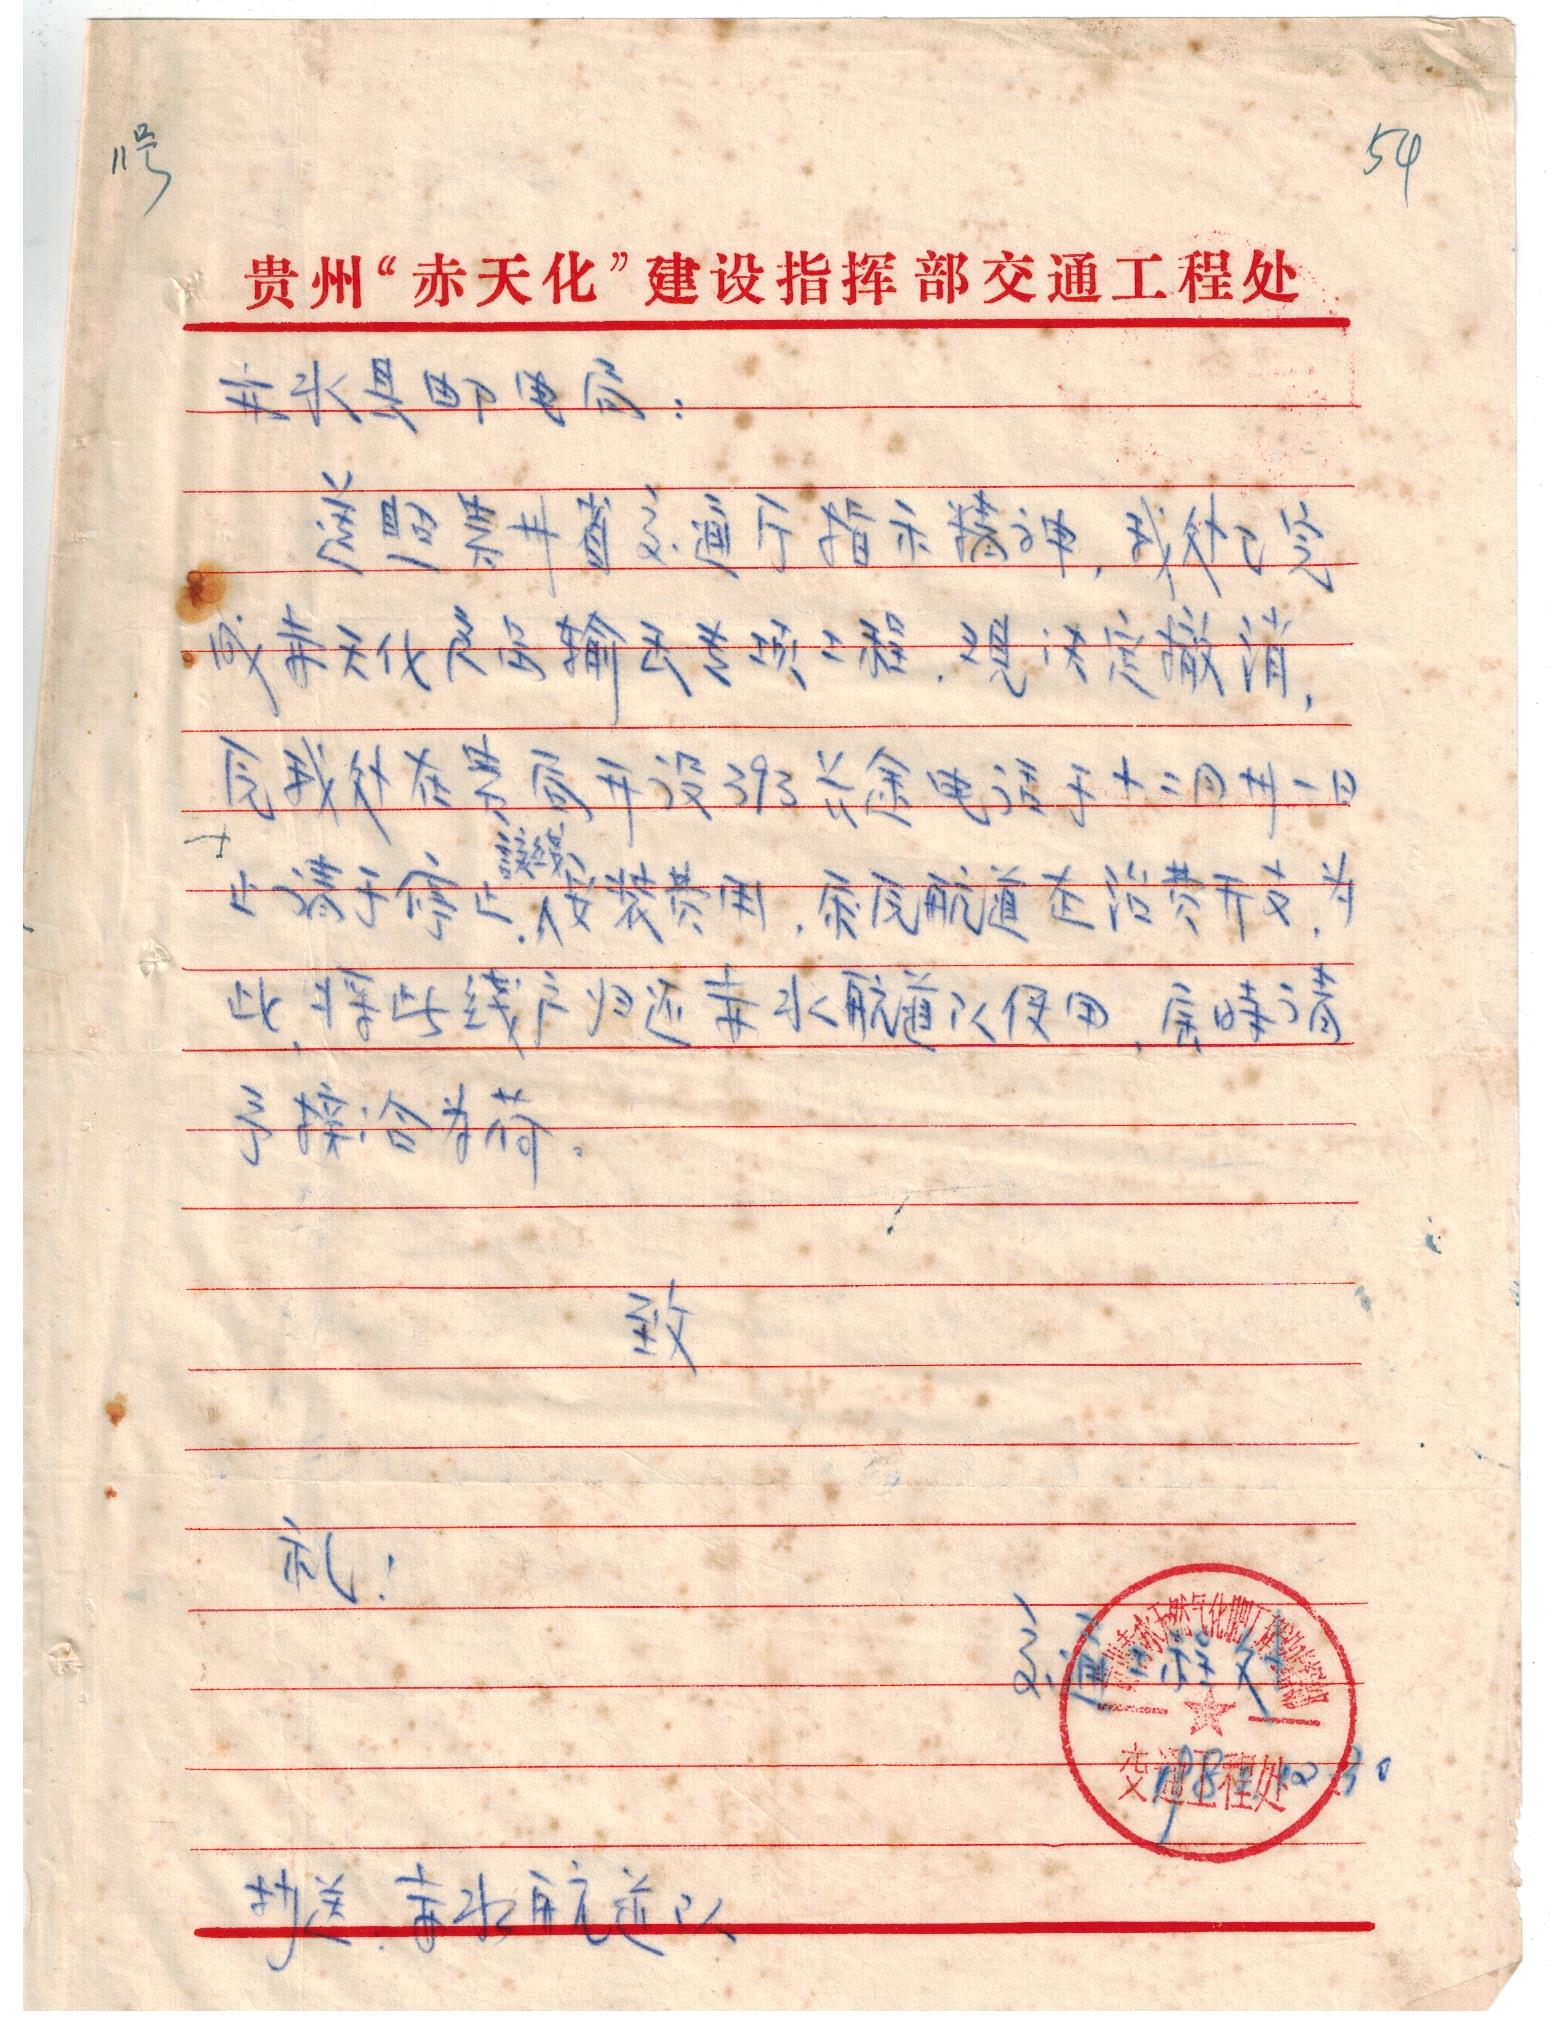 11号
54
贵州“赤天化”建设指挥部交通工程处
赤水县邮电局:
遵照贵州省交通厅指示精神,我处已完
成赤天化 运输 专项工程,现决定撤消,
原我处在贵局开设393长途电话于十二月卅一日
止请予停止。该线安装费用,系原航道整治费开支,为
此,将此线户归还赤水航道队使用,届时请
予接洽为荷。
致
礼!
交通工程处
交通工程处
抄送:赤水航道队